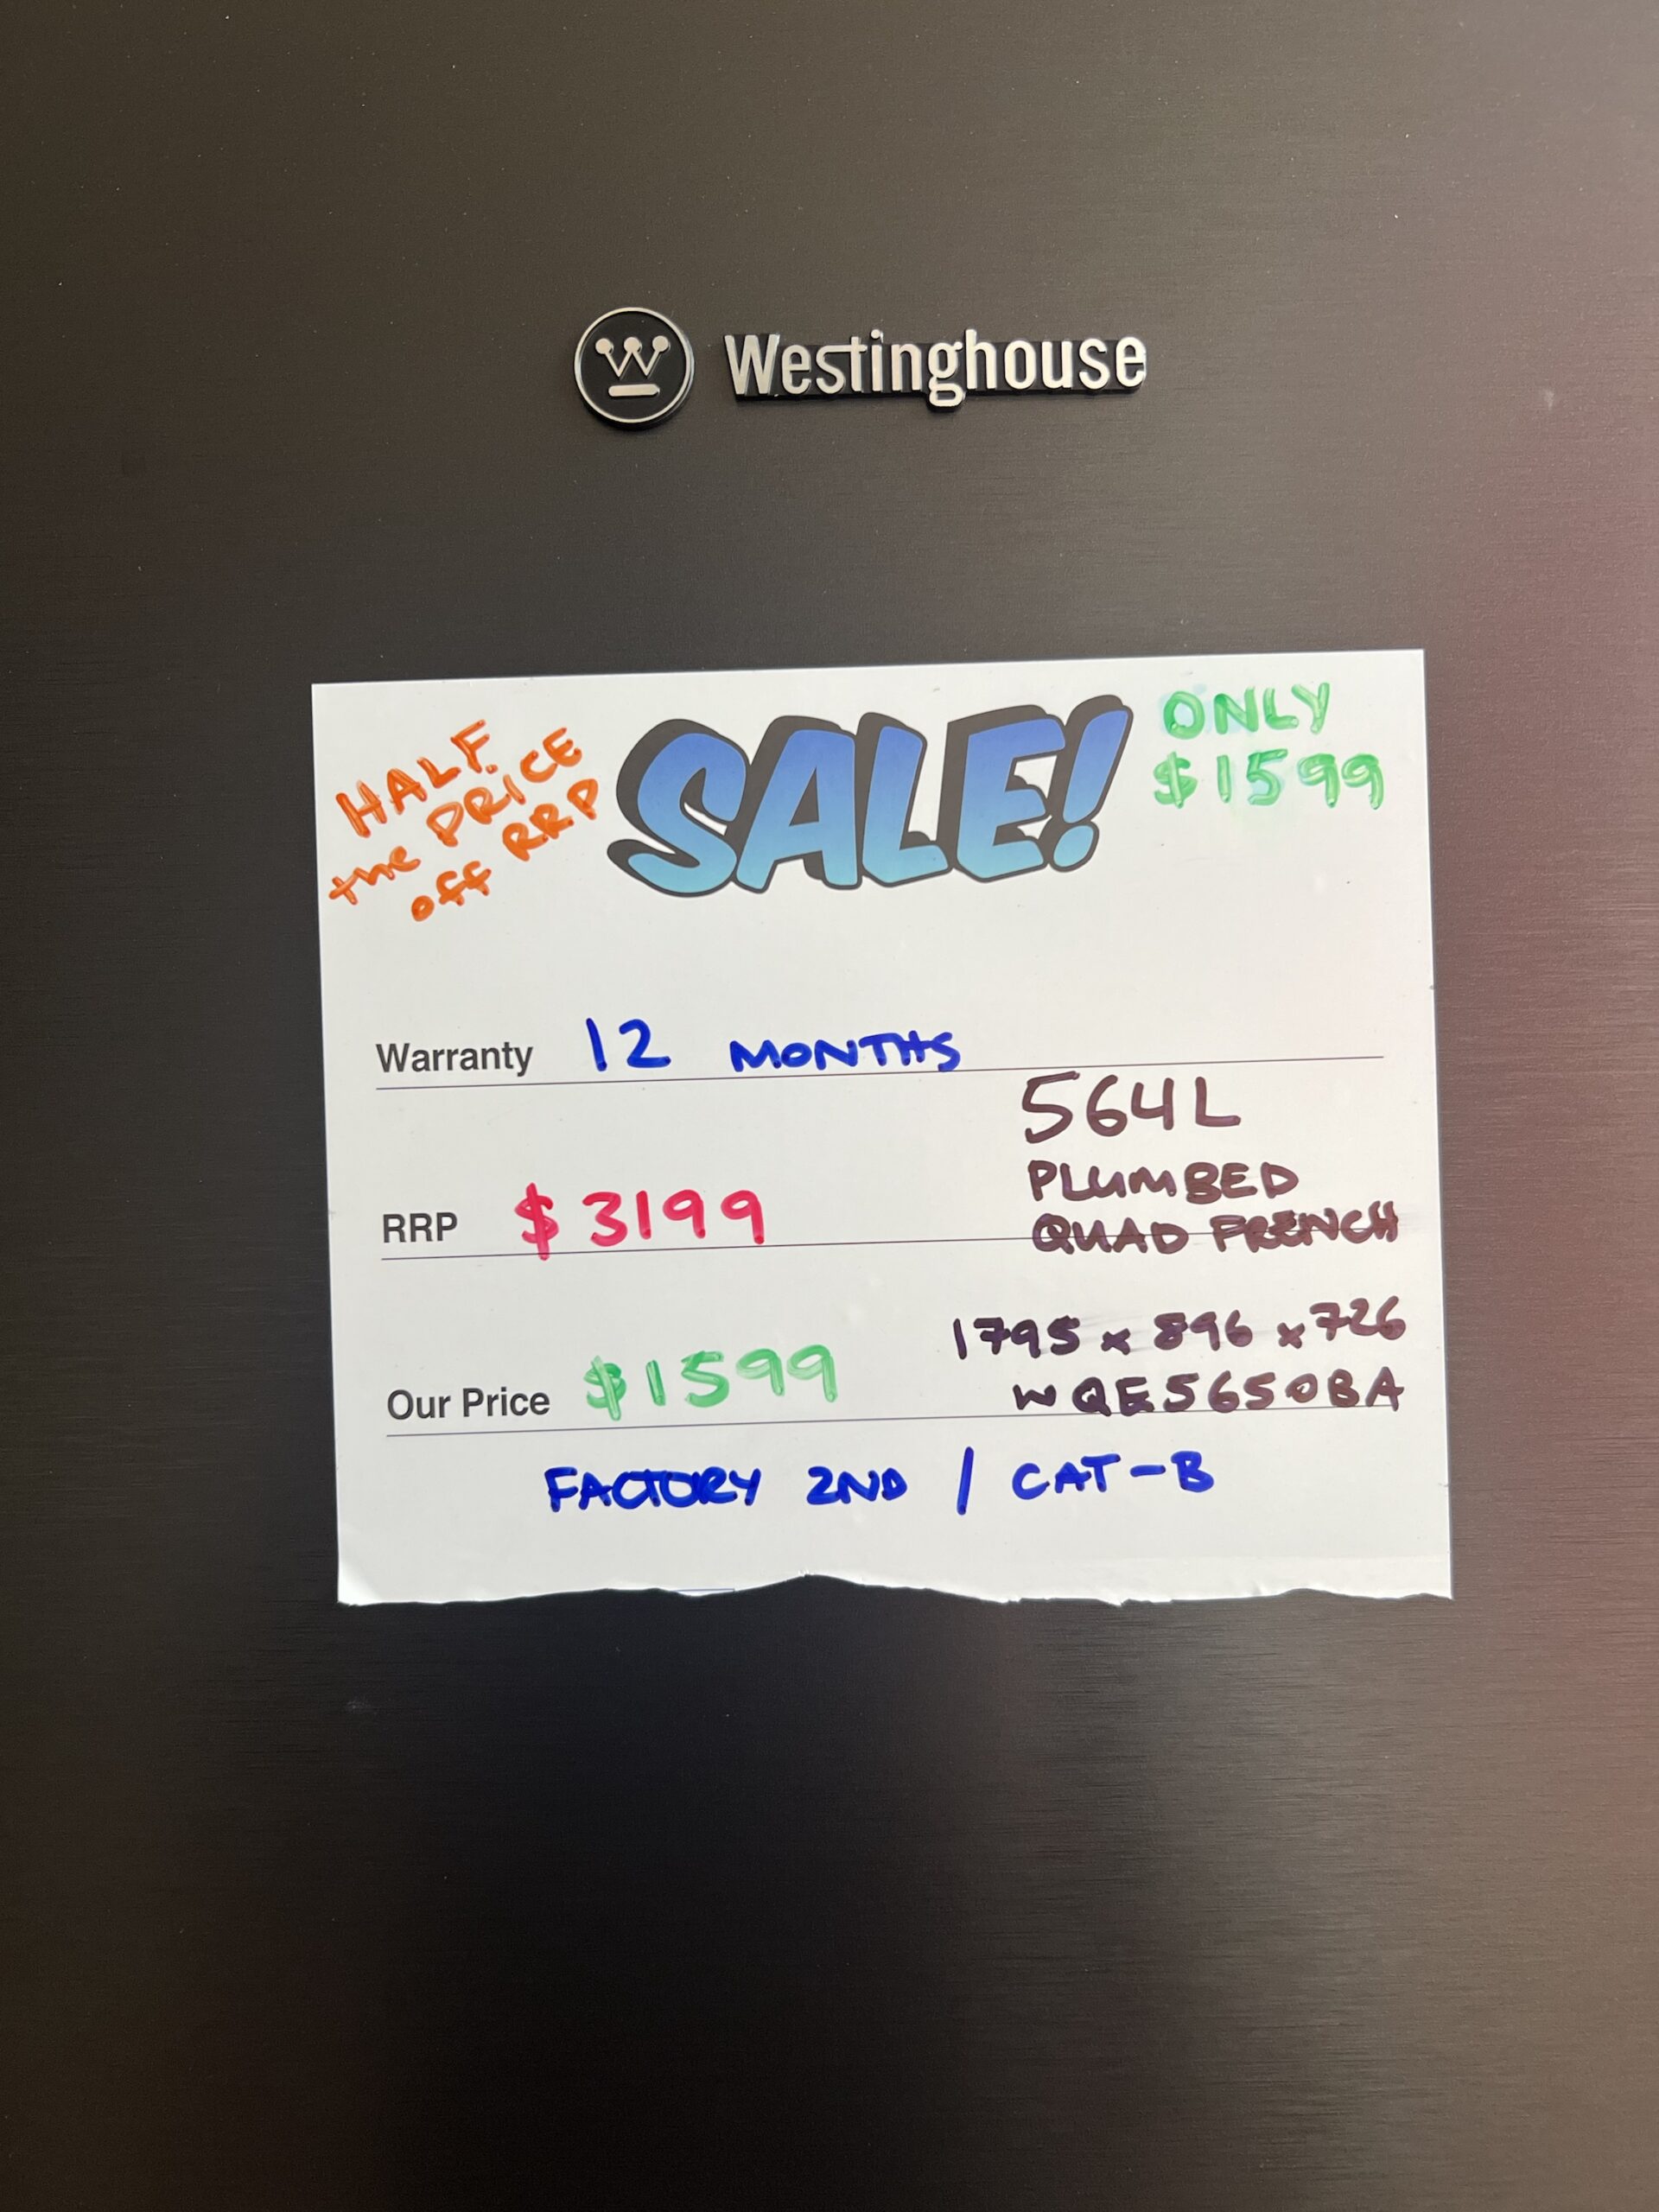 Westinghouse
HALF
the PRICE
off RRP
SALE!
ONLY
$1599
Warranty 12 MONTHS
564L
PLUMBED
QUAD FRENCH
RRP $3199
1795 x 896 x 726
WQE5650BA
Our Price $1599
FACTORY 2ND / CAT-B